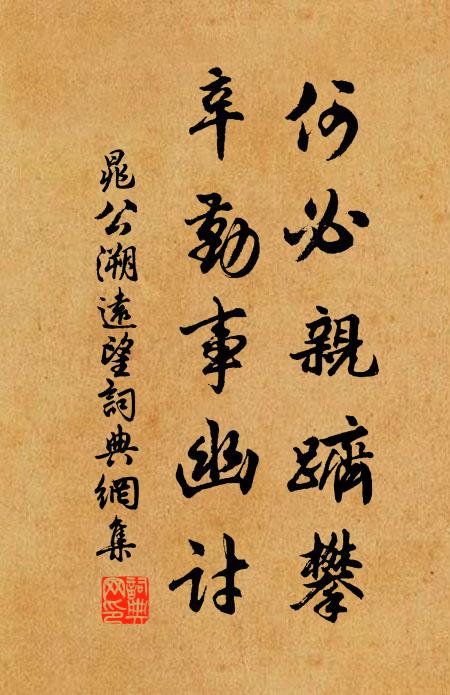 何必親躋攀
辛勤事幽討
晁公溯遠望詞典網集
詞典
网印